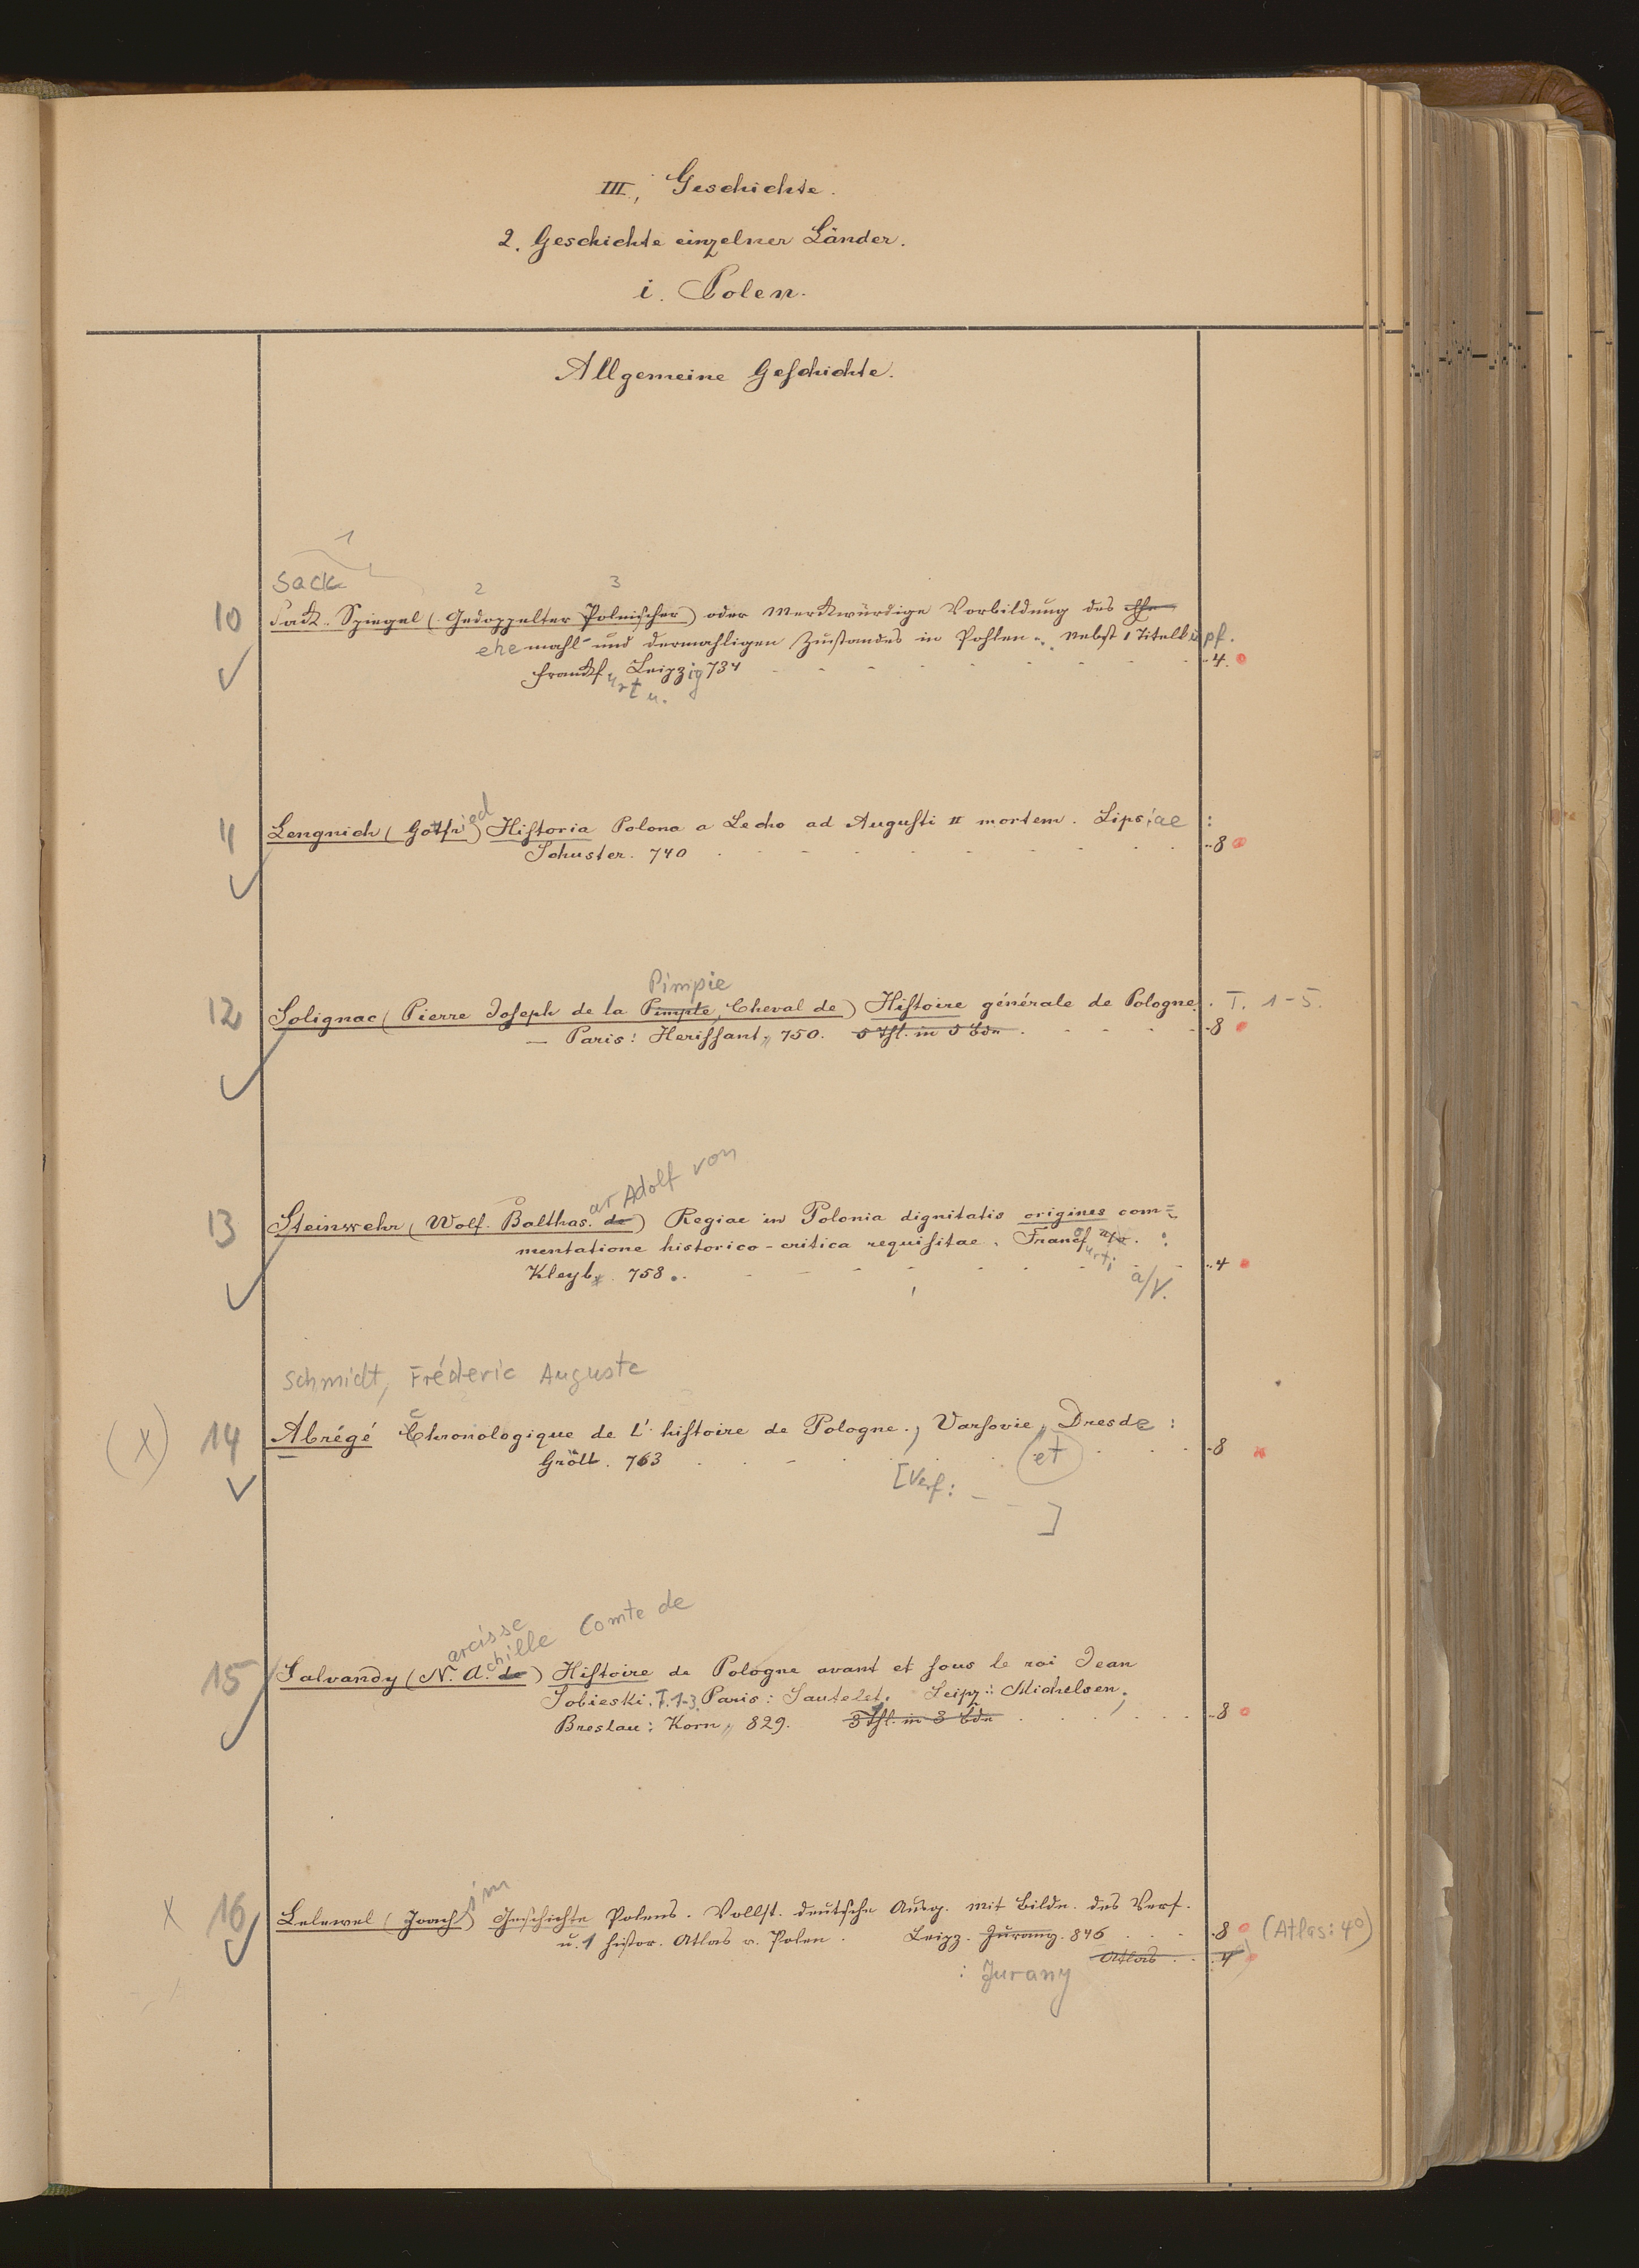 III, Geschichte.
2. Geschichte einzelner Länder.
i. Polen.
Allgemeine Geschichte.
1
Sack 2 3
10 Sack-Spiegel (Gedoppelter Polnischer) oder Merckwürdige Vorbildung des Ehe
ehemahl- und dermahligen Zustandes in Pohlen. Nebst 1 Titelkupf.
Franckfurt u. Leipzig 734 4.
11 Lengnich (Gottfried) Historia Polona a Lecho ad Augusti II mortem. Lipsiae :
Schuster. 740 8
Pimpie
12 Solignac (Pierre Joseph de la Pimpte, Cheval de) Histoire générale de Pologne. T. 1-5.
— Paris: Herissant, 750. 5 Thl. in 5 Bdn 8
ar Adolf von
13 Steinwehr (Wolf. Balthas. de) Regiae in Polonia dignitatis origines com=
mentatione historico-critica requisitae. Francofurti a/V. :
Kleyb. 758. 4
Schmidt, Fréderic Auguste
(X) 14 Abrégé Chronologique de L'histoire de Pologne., Varsovie, et Dresde :
Gröll. 763 8
[Verf: – – ]
arcisse chille Comte de
15 Salvandy (N. A. de) Histoire de Pologne avant et sous le roi Jean
Sobieski. T. 1-3. Paris: Sautelet, Leipz: Michelsen;
Breslau: Korn, 829. 3 Thl. in 3 Bdn 8
X 16 Lelewel (Joachim) Geschichte Polens. Vollst. deutsche Ausg. mit Bildn. des Verf.
u. 1 histor. Atlas v. Polen. Leipz. Jurany. 846 8 (Atlas: 4°)
Atlas 4
: Jurany